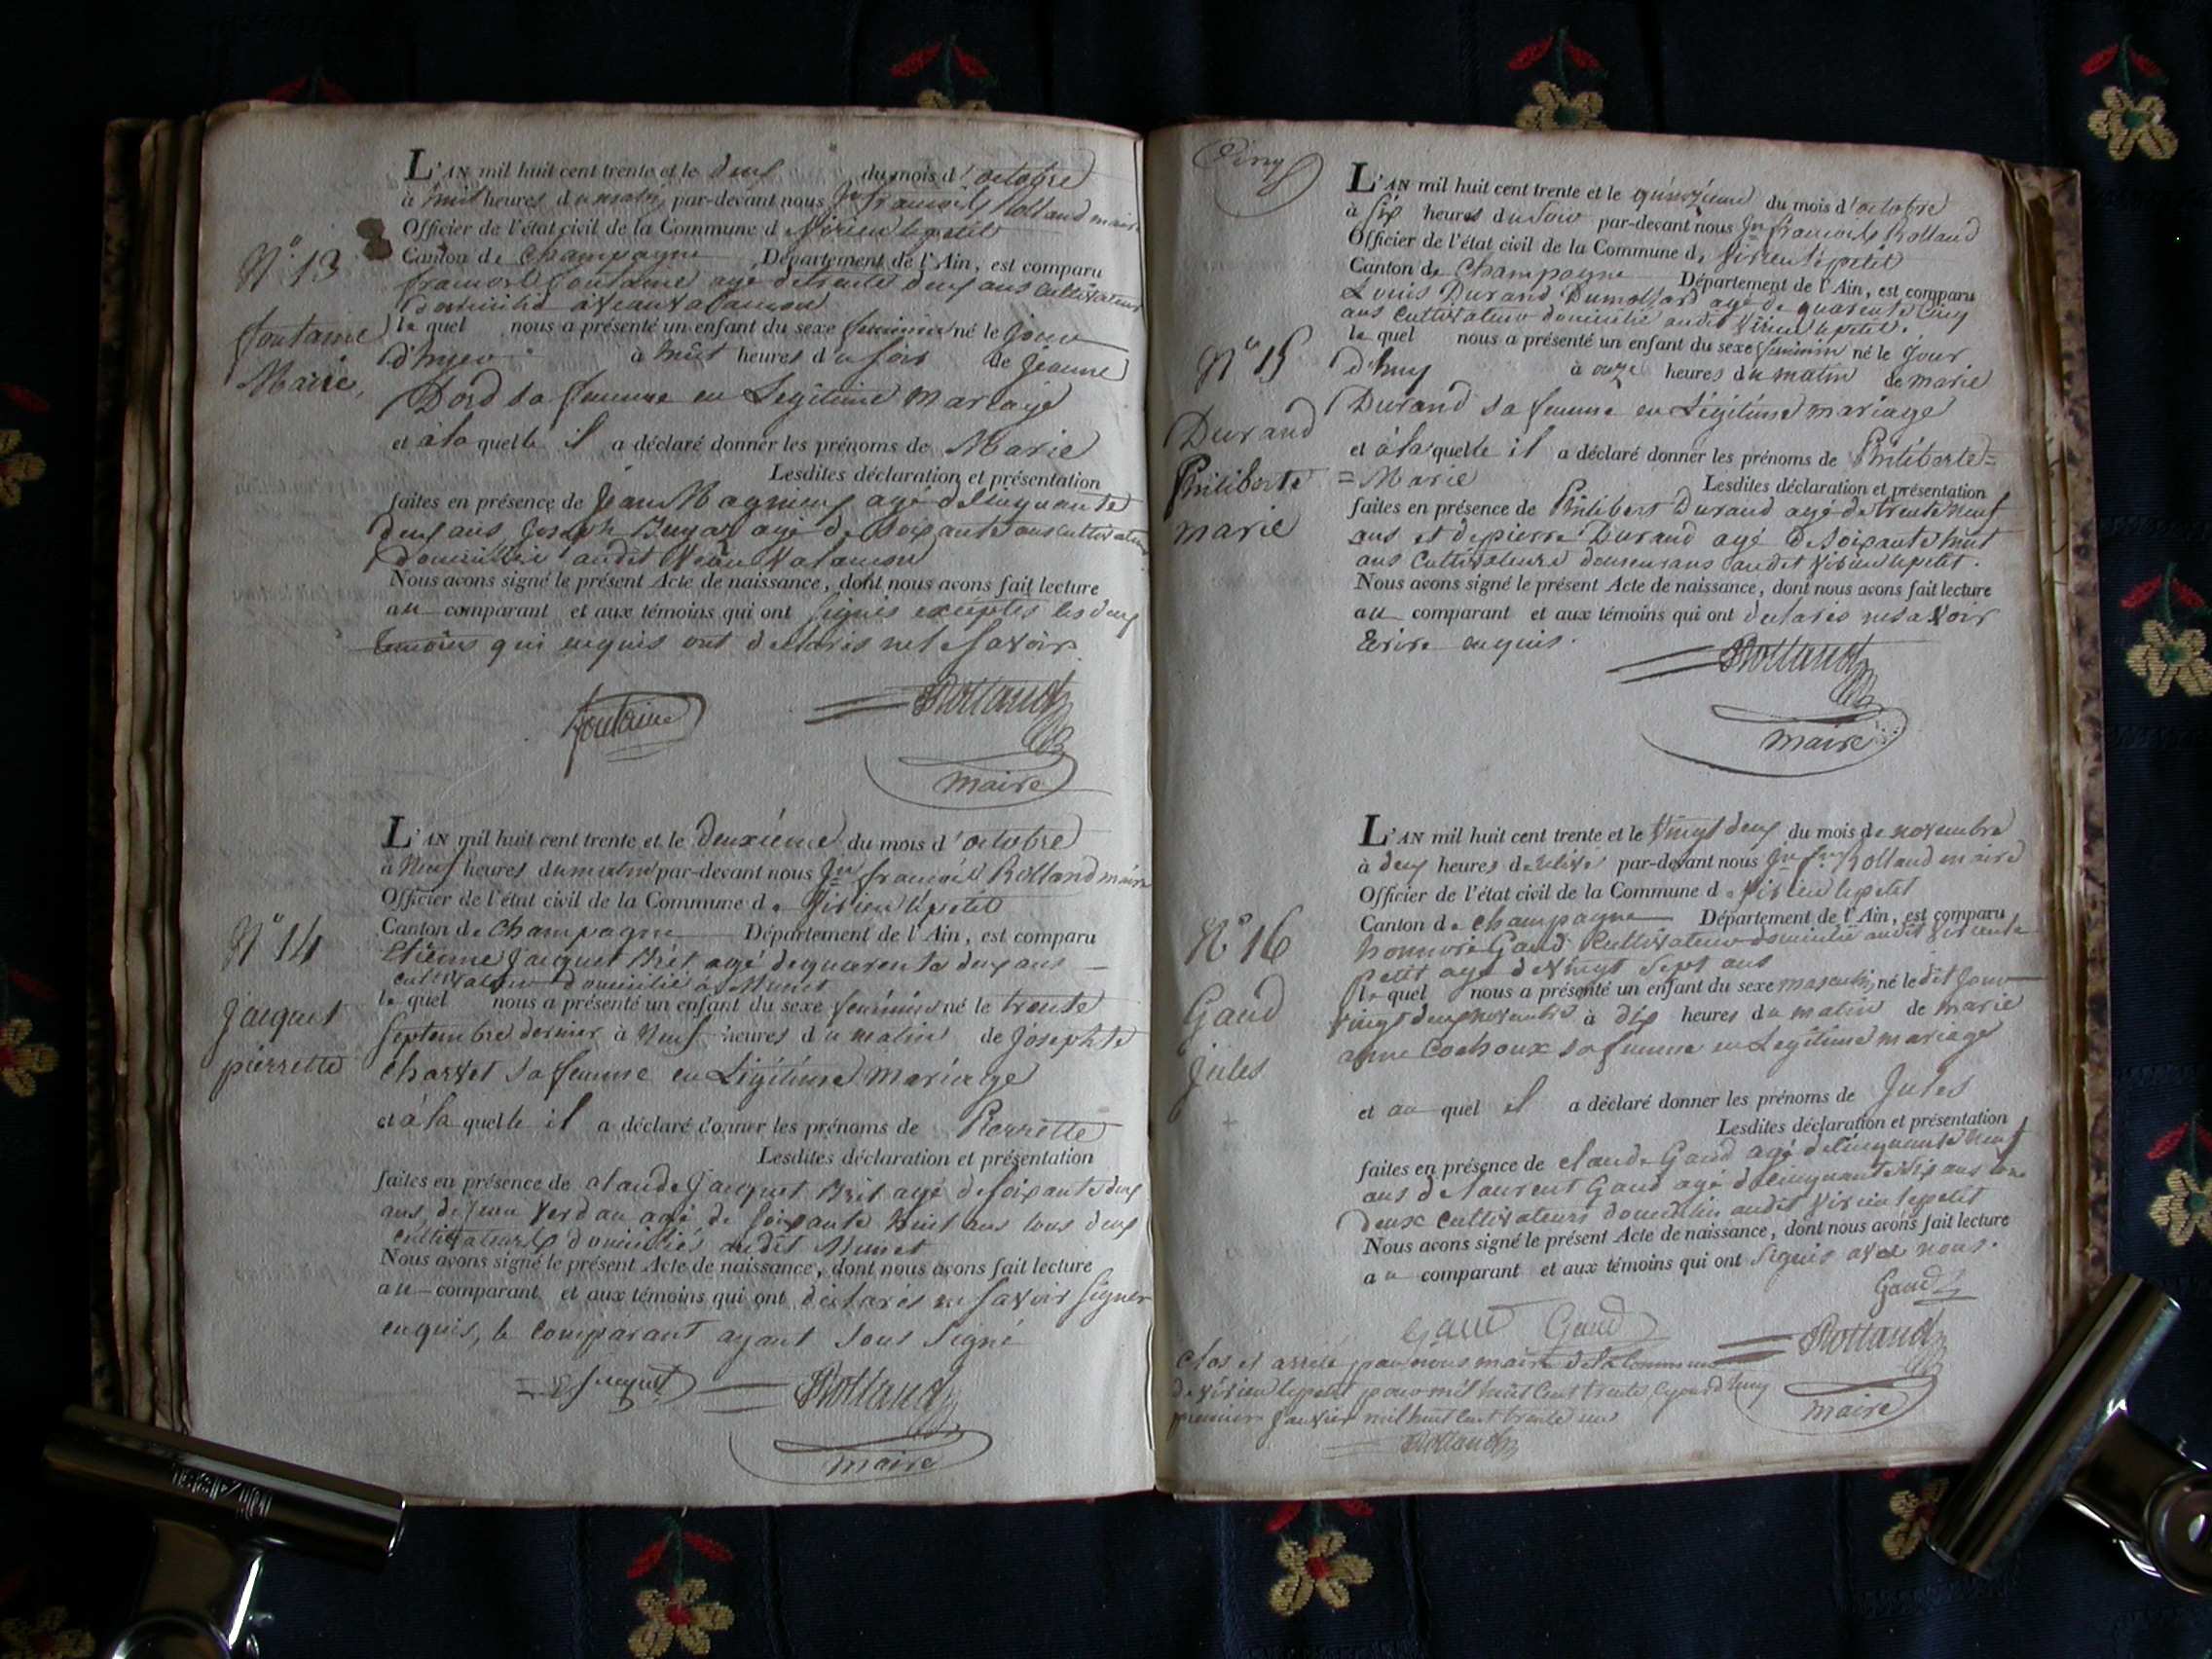 L'AN mil huit cent trente et le deux du mois d'octobre
à huit heures du matin par-devant nous Jn françois Rolland maire
Officier de l'état civil de la Commune de Virieu le petit
Canton de Champagne Département de l'Ain, est comparu
françois fontaine agé de trente deux ans cultivateur
domicilié à Veauvalamon
N° 13
fontaine
Marie,
le quel nous a présenté un enfant du sexe feminin né le jour
d'hyer à huit heures du soir de jeanne
Dord sa femme en Légitime mariage
et à la quelle il a déclaré donner les prénoms de Marie
Lesdites déclaration et présentation
faites en présence de jean agé de Cinquante
deux ans joseph agé de Soixante ans cultivateurs
domicilies audit
Nous avons signé le présent Acte de naissance, dont nous avons fait lecture
au comparant et aux témoins qui ont signés exceptés les deux
temoins qui enquis ont declarés ne le savoir
fontaine Rolland
maire
L'AN mil huit cent trente et le deuxiéme du mois d'octobre
à Neuf heures du matin par-devant nous Jn françois Rolland maire
Officier de l'état civil de la Commune de Virieu le petit
Canton de Champagne Département de l'Ain, est comparu
Etienne Jacquet Brit agé de quarente deux ans
cultivateur domicilié à Munet
N° 14
jacquet
pierrette
le quel nous a présenté un enfant du sexe feminin né le trente
septembre dernier à Neuf heures du matin de josephte
Charvet sa femme en Légitime Mariage
et à la quelle il a déclaré donner les prénoms de Pierrette
Lesdites déclaration et présentation
faites en présence de claude Jacquet Brit agé de soixante deux
ans de jean agé de soixante huit ans tous deux
cultivateurs domiciliés audit Munet
Nous avons signé le présent Acte de naissance, dont nous avons fait lecture
au comparant et aux témoins qui ont déclarés ne savoir signer
enquis, le comparant ayant sous signé
E jacquet Rolland
maire
L'AN mil huit cent trente et le quinziéme du mois d'octobre
à six heures du soir par-devant nous Jn françois Rolland
Officier de l'état civil de la Commune de Virieu le petit
Canton de Champagne Département de l'Ain, est comparu
Louis Durand Dumollard agé de quarente Cinq
ans cultivateur domicilié audit Virieu le petit.
N° 15
Durand
Philiberte
marie
le quel nous a présenté un enfant du sexe feminin né le jour
d'huy à onze heures du matin de marie
Durand sa femme en Légitime mariage
et à la quelle il a déclaré donner les prénoms de Philiberte=
=Marie
Lesdites déclaration et présentation
faites en présence de Philibert Durand agé de trente neuf
ans et de pierre Durand agé de soixante huit
ans cultivateurs demeurans audit Virieu le petit.
Nous avons signé le présent Acte de naissance, dont nous avons fait lecture
au comparant et aux témoins qui ont declarés ne savoir
Ecrire enquis.
Rolland
maire
L'AN mil huit cent trente et le Vingt deux du mois de novembre
à deux heures de par-devant nous Jn fois Rolland maire
Officier de l'état civil de la Commune de Virieu le petit
Canton de Champagne Département de l'Ain, est comparu
honnoré Gaud Cultivateur domicilié audit Virieu le
petit agé de Vingt Sept ans
N° 16
Gaud
jules
le quel nous a présenté un enfant du sexe masculin né le dit jour
Vingt deux novembre à dix heures du matin de marie
anne Cochoux sa femme en Legitime mariage
et au quel il a déclaré donner les prénoms de Jules
Lesdites déclaration et présentation
faites en présence de claude Gaud agé de Cinquante neuf
ans de laurent Gaud agé de cinquante six ans tous
deux cultivateurs domiciliés audit Virieu le petit
Nous avons signé le présent Acte de naissance, dont nous avons fait lecture
au comparant et aux témoins qui ont signés avec nous.
Gaud
Gaud Gaud
Rolland
maire
Clos et arreté par nous maire de la Commune
de Virieu le petit pour mil huit cent trente cejourd'huy
premier janvier mil huit cent trente un
Rolland